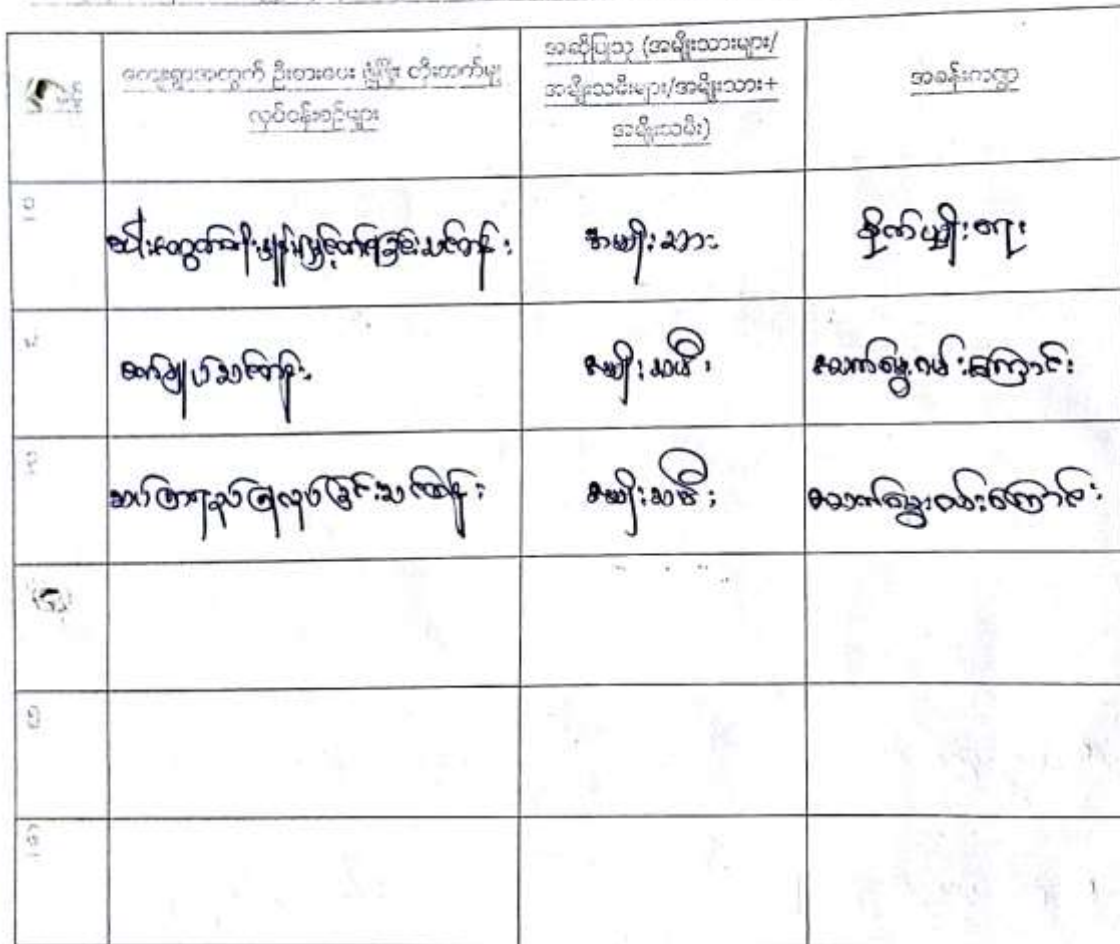 ကျေးရွာအတွက် ဦးစားပေး ဖွံ့ဖြိုး တိုးတက်မှု
လုပ်ငန်းစဉ်များ
အဆိုပြုသူ (အမျိုးသားများ/
အမျိုးသမီးများ/အမျိုးသား+
အမျိုးသမီး)
အခန်းကဏ္ဍ
၁
သီးထွက်တိုး မျှင့်တင်ခြင်းသင်တန်း
အမျိုးသား
စိုက်ပျိုးရေး
၂
စက်ချုပ်သင်တန်း
အမျိုးသမီး
အသက်မွေးဝမ်းကြောင်း
၃
ဆပ်ပြာရည်ပြုလုပ်ခြင်းသင်တန်း
အမျိုးသမီး
အသက်မွေးဝမ်းကြောင်း
၄
၅
၆